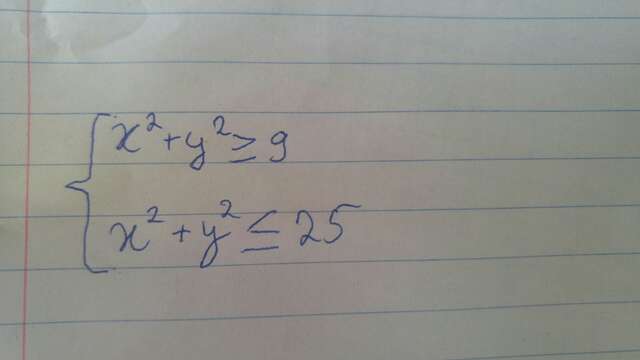 x²+y²≥9
x²+y²≤25